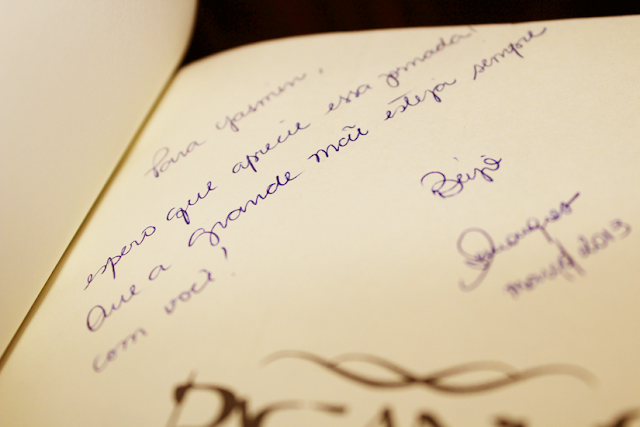 Para Yasmin,
espero que aprecie essa jornada!
Que a grande mãe esteja sempre
com você!
Beijo
março 2013